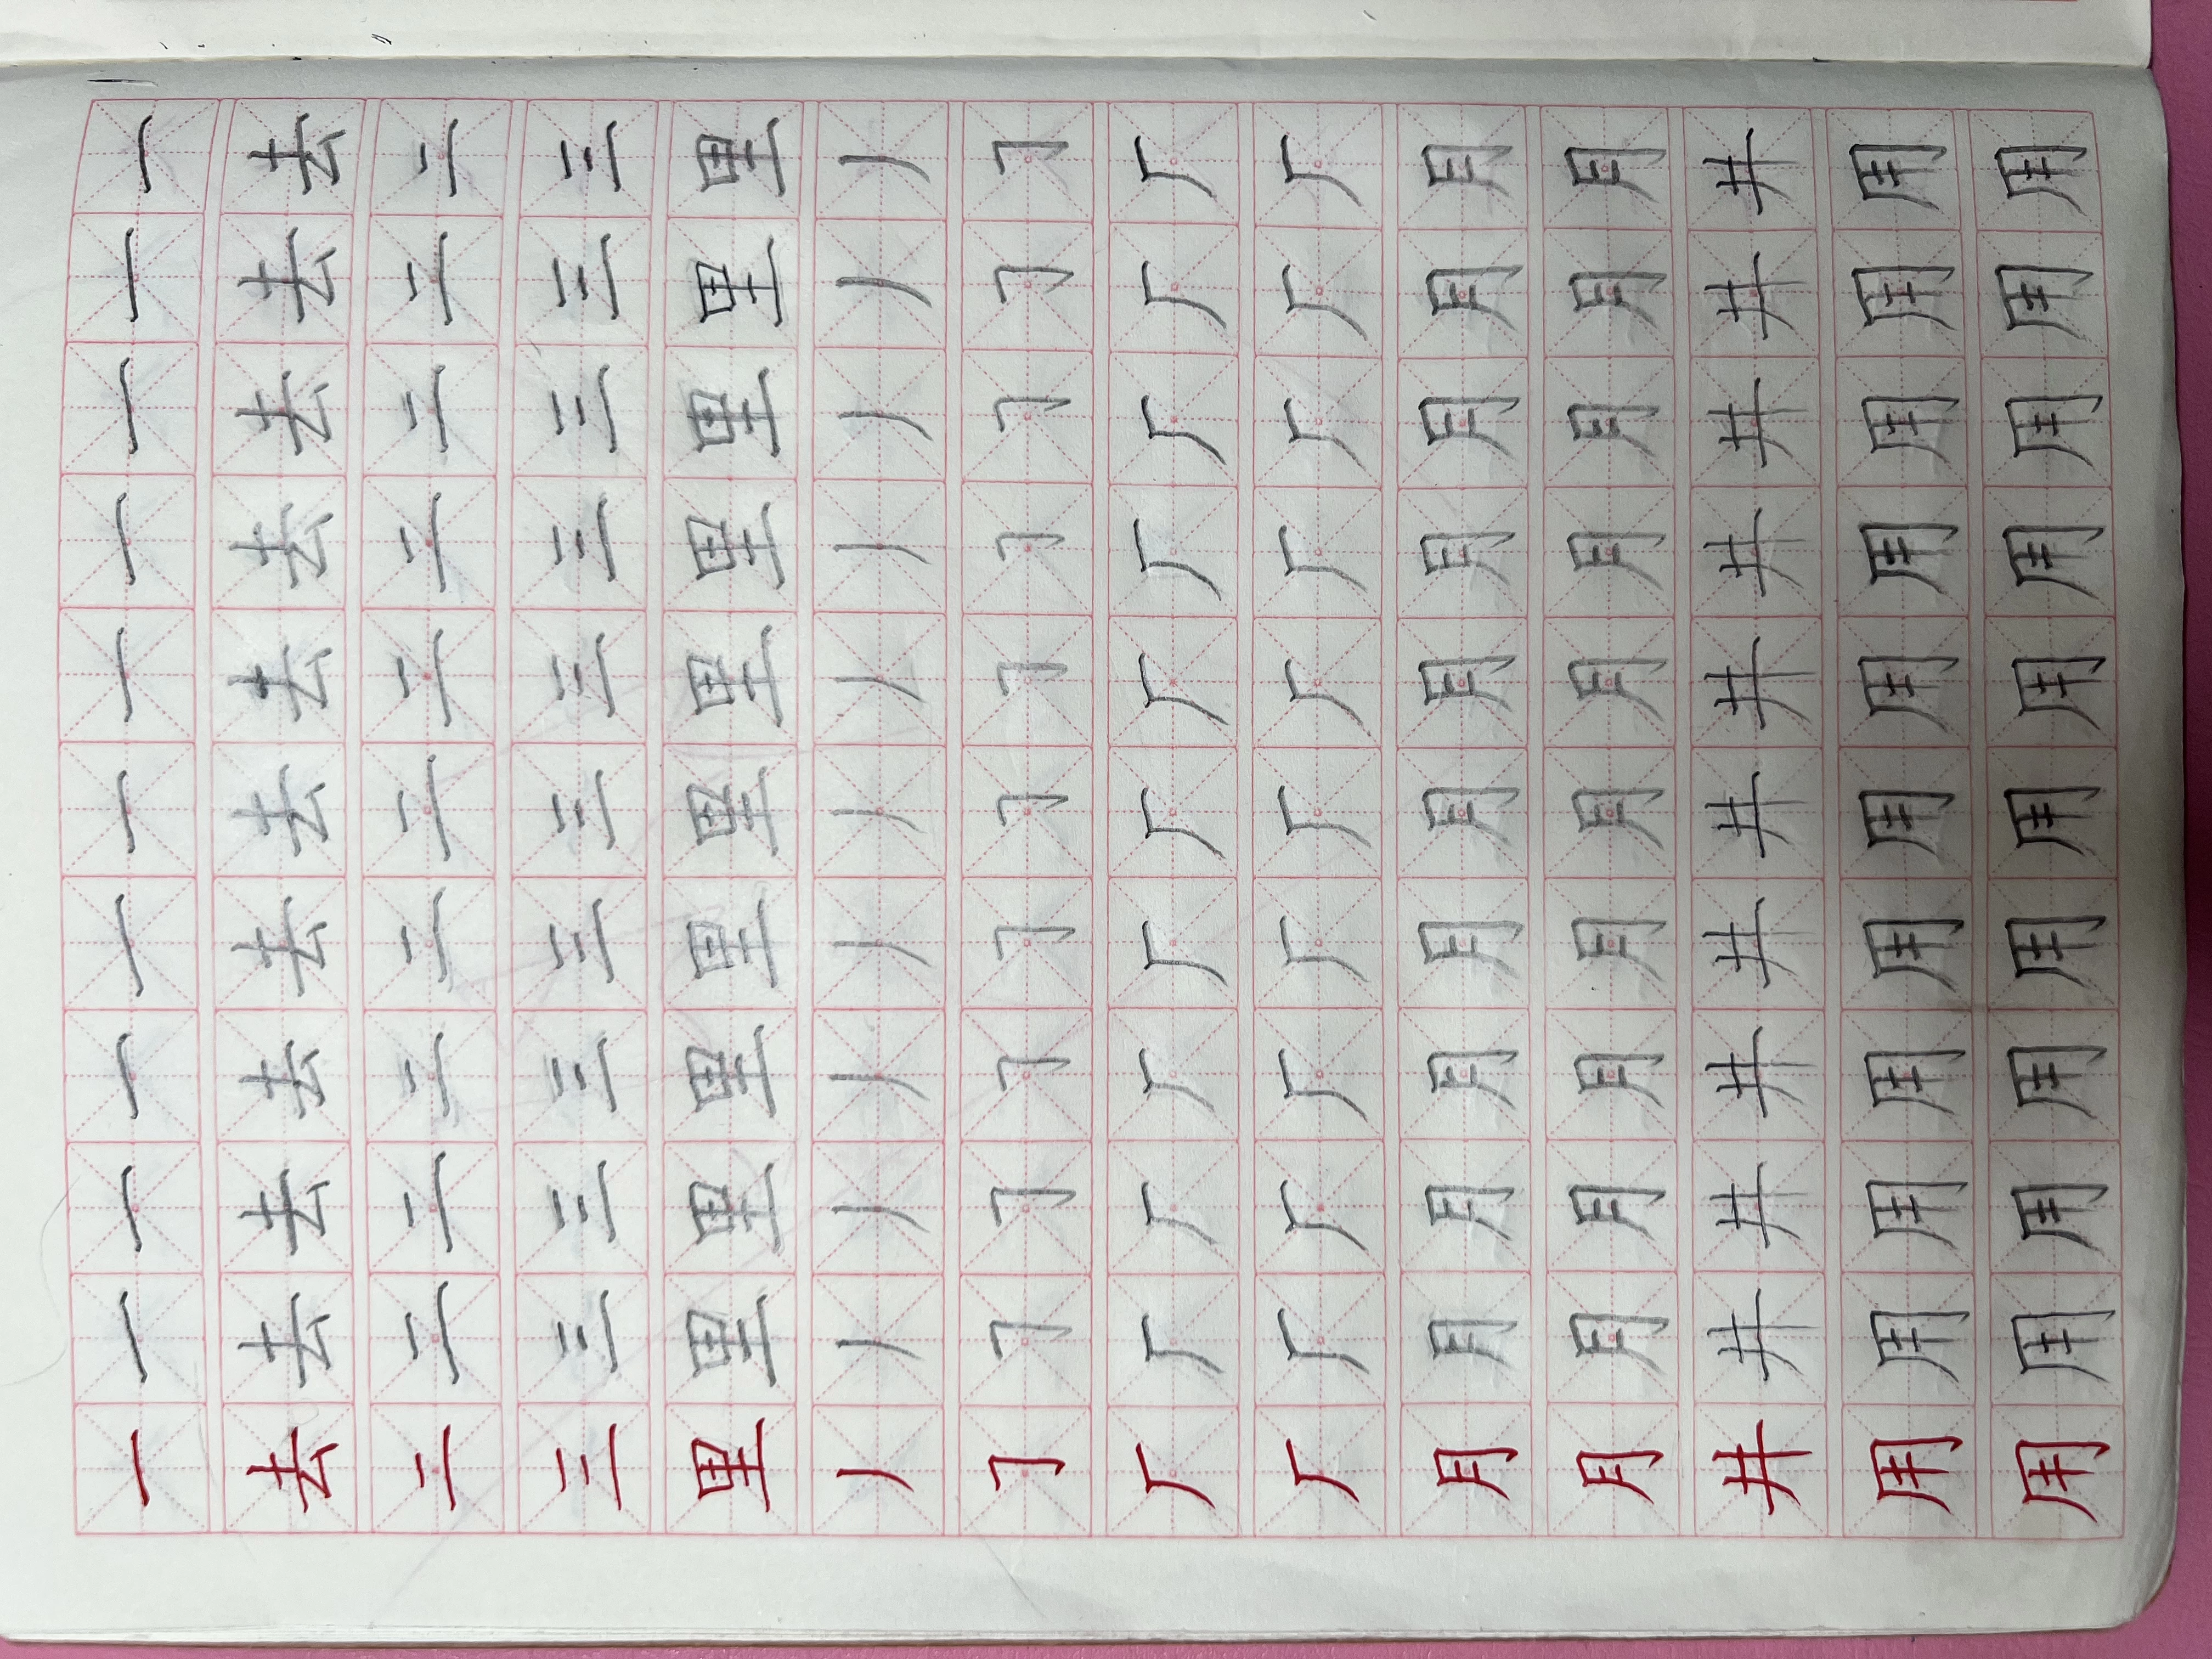 一一一一一一一一一一一
去去去去去去去去去去去
二二二二二二二二二二二
三三三三三三三三三三三
里里里里里里里里里里里
丿丿丿丿丿丿丿丿丿丿丿
㇆㇆㇆㇆㇆㇆㇆㇆㇆㇆㇆
厂厂厂厂厂厂厂厂厂厂厂
厂厂厂厂厂厂厂厂厂厂厂
月月月月月月月月月月月
月月月月月月月月月月月
井井井井井井井井井井井
用用用用用用用用用用用
用用用用用用用用用用用